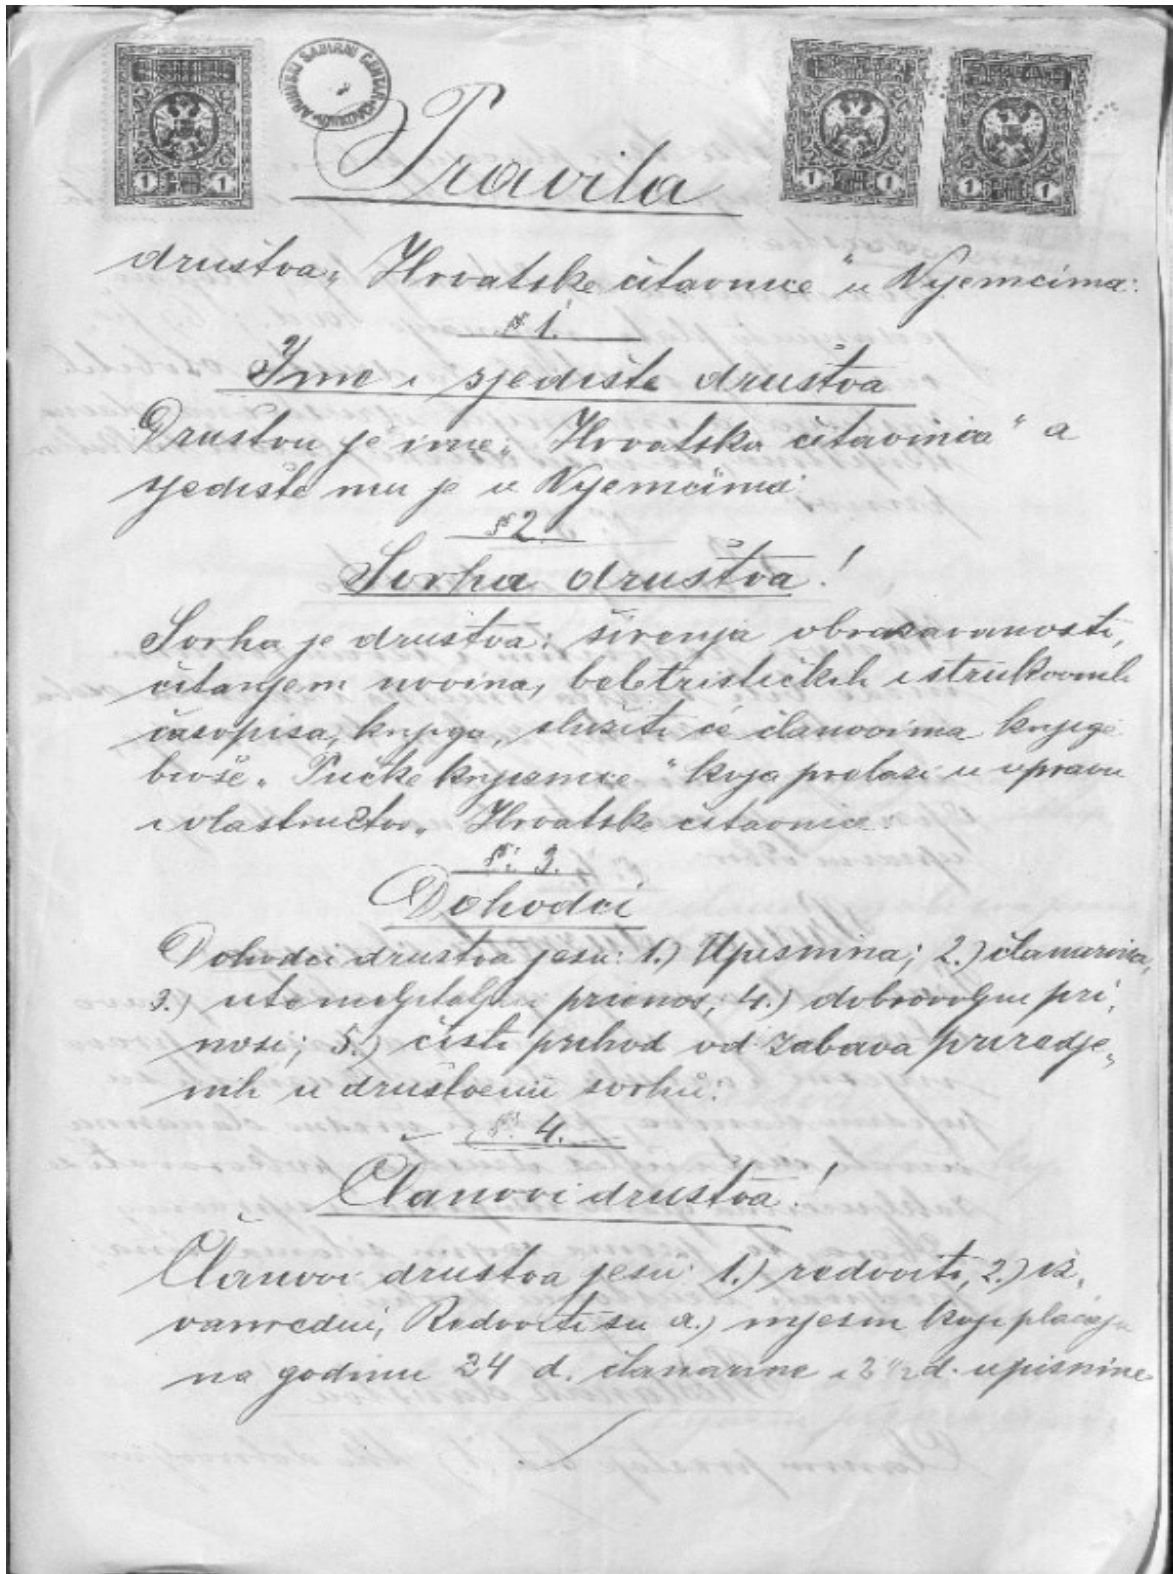 ARHIVSKI SABIRNI CENTAR VINKOVCI
1 1
1 1
1 1
Pravila
društva „Hrvatske čitavnice" u Nijemcima:
§ 1.
Ime i sjedište društva
Društvu je ime „Hrvatska čitavnica" a
sjedište mu je u Nijemcima:
§ 2.
Svrha društva!
Svrha je društva: širenja obrazavanosti,
čitanjem novina, beletrističkih i strukovnih
časopisa, knjiga, služiti će članovima knjige
bivše „Pučke knjižnice" koja prelazi u upravu
i vlastničtvo „Hrvatske čitavnice.
§: 3.
Dohodci
Dohodci društva jesu: 1.) Upisnina; 2.) članarina,
3.) utemeljiteljni prienos; 4.) dobrovoljni pri„
nosi; 5.) čisti prihod od zabava priredje„
nih u društvenu svrhu:
§: 4.
Članovi društva!
Članovi društva jesu: 1.) redoviti, 2.) iz„
vanredni, Redoviti su a.) mjesni koji plaćaju
na godinu 24 d. članarine i 2 1/2 d. upisnine